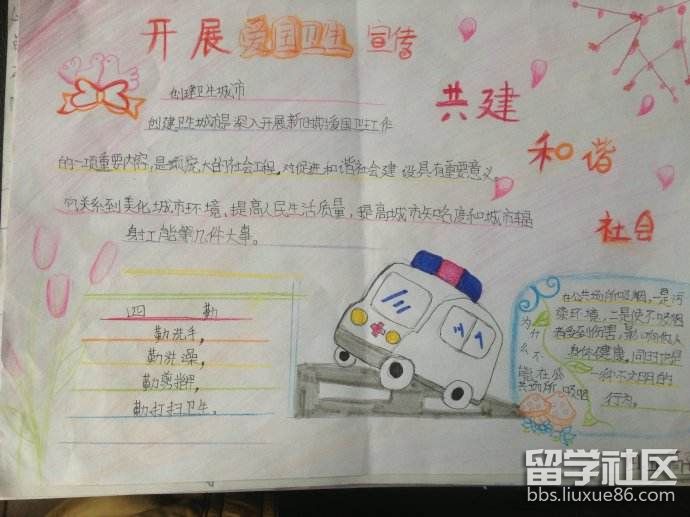 开展爱国卫生宣传
共建
和谐
社会
创建卫生城市
创建卫生城市是深入开展新时期爱国卫生工作
的一项重要内容,是项宠大的社会工程,对促进和谐社会建设具有重要意义。
关系到美化城市环境、提高人民生活质量,提高城市知名度和城市辐
射功能第几件大事。
四 勤
勤洗手,
勤洗澡,
勤剪指甲,
勤打扫卫生。
为什么不
能在公
共场所吸烟
在公共场所吸烟,一是污
染环境,二是使不吸烟
者受到伤害,影响他人
身体健康,同时也是
一种不文明的
行为。
留学社区
bbs.liuxue86.com